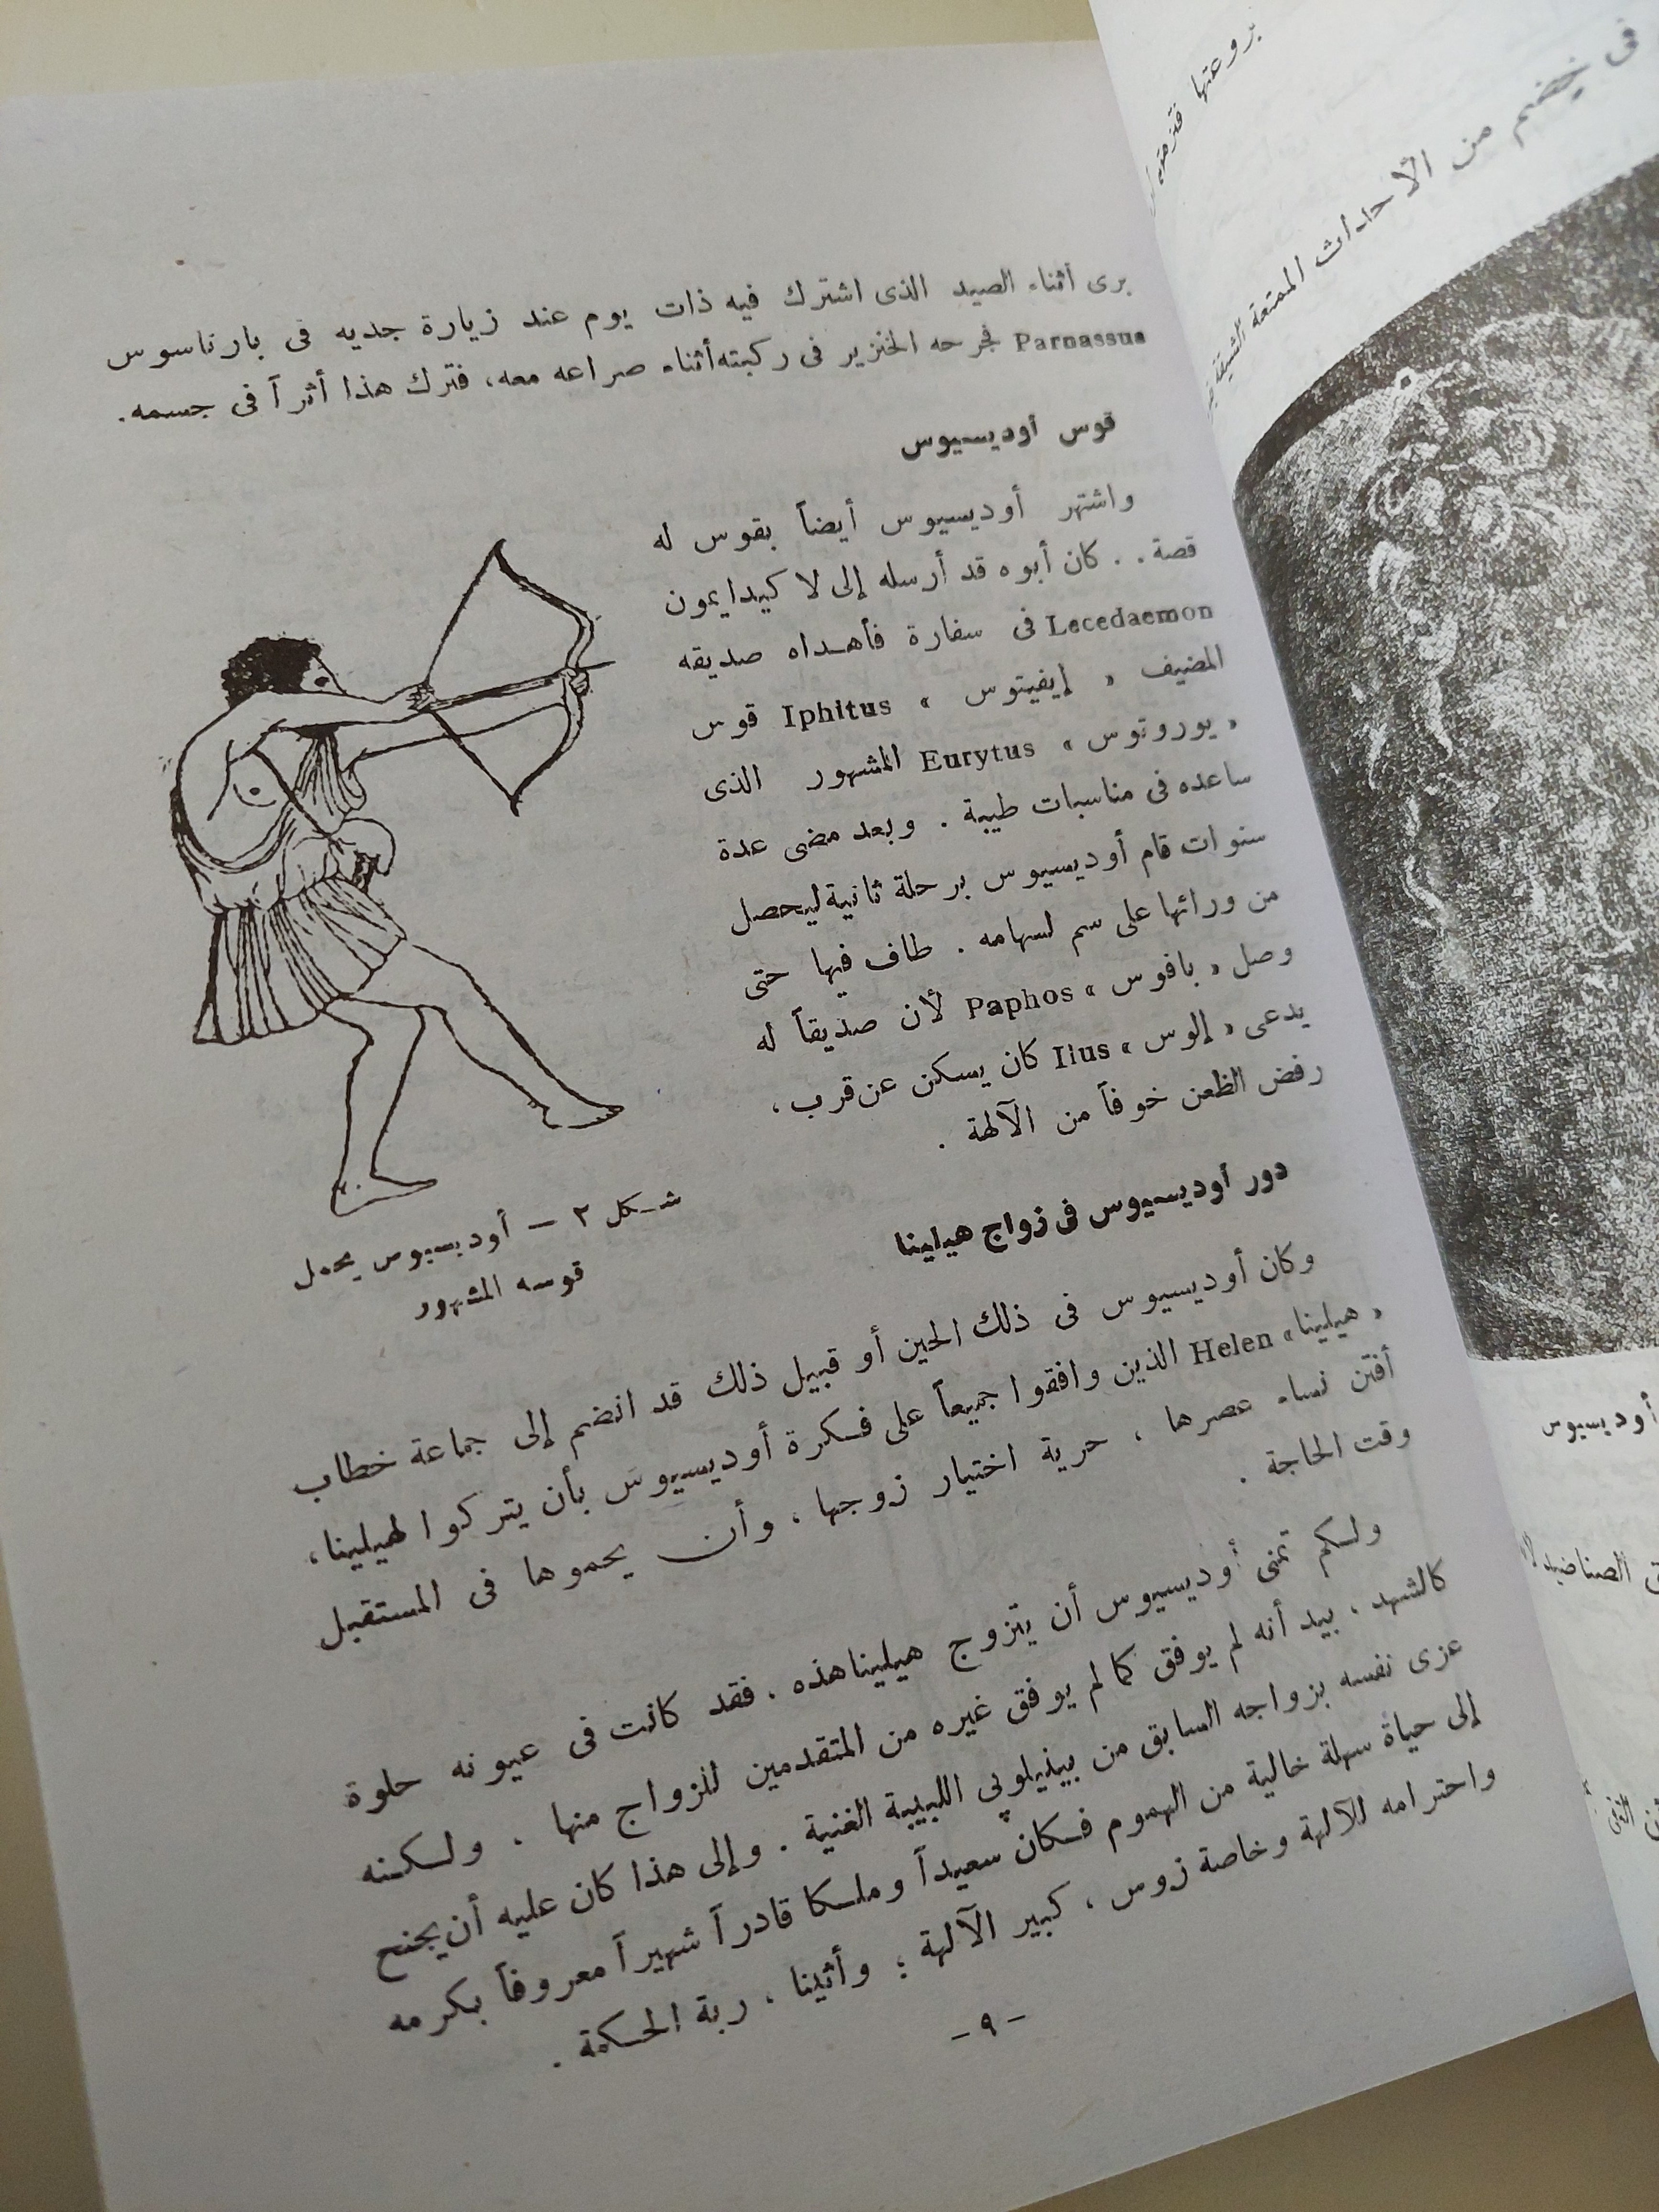 برى أثناء الصيد الذى اشترك فيه ذات يوم عند زيارة جديه فى بارناسوس
Parnassus فجرحه الخنزير فى ركبته أثناء صراعه معه، فترك هذا أثراً فى جسمه.
قوس أوديسيوس
واشتهر أوديسيوس أيضاً بقوس له
قصة . . كان أبوه قد أرسله إلى لاكيدايمون
Lecedaemon فى سفارة فأهداه صديقه
المضيف « إيفيتوس » Iphitus قوس
« يوروتوس » Eurytus المشهور الذى
ساعده فى مناسبات طيبة . وبعد مضى عدة
سنوات قام أوديسيوس برحلة ثانية ليحصل
من ورائها على سم لسهامه . طاف فيها حتى
وصل « بافوس » Paphos لأن صديقاً له
يدعى « إلوس » Ilus كان يسكن عن قرب ،
رفض الظعن خوفاً من الآلهة .
شكل ٢ — أوديسيوس يحمل
قوسه المشهور
دور أوديسيوس فى زواج هيلينا
وكان أوديسيوس فى ذلك الحين أو قبيل ذلك قد انضم إلى جماعة خطاب
« هيلينا » Helen الذين وافقوا جميعاً على فكرة أوديسيوس بأن يتركوا لهيلينا،
أفتن نساء عصرها ، حرية اختيار زوجها ، وأن يحموها فى المستقبل
وقت الحاجة .
ولكم تمنى أوديسيوس أن يتزوج هيلينا هذه ، فقد كانت فى عيونه حلوة
كالشهد ، بيد أنه لم يوفق كما لم يوفق غيره من المتقدمين للزواج منها . ولكنه
عزى نفسه بزواجه السابق من بينيلوبى اللبيبة الغنية . وإلى هذا كان عليه أن يجنح
إلى حياة سهلة خالية من الهموم فكان سعيداً وملكا قادراً شهيراً معروفاً بكرمه
واحترامه للآلهة وخاصة زوس ، كبير الآلهة ؛ وأثينا ، ربة الحكمة .
- ٩ -
بروعتها
فى خضم من الأحداث الممتعة الشيقة
أوديسيوس
الصناديد